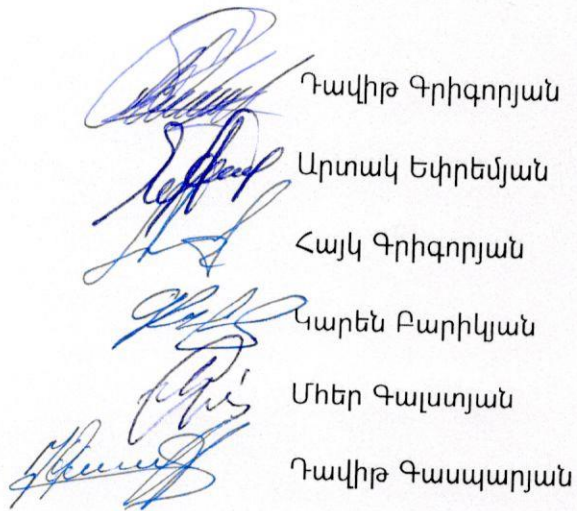 Դավիթ Գրիգորյան
Արտակ Եփրեմյան
Հայկ Գրիգորյան
Կարեն Բարիկյան
Մհեր Գալստյան
Դավիթ Գասպարյան